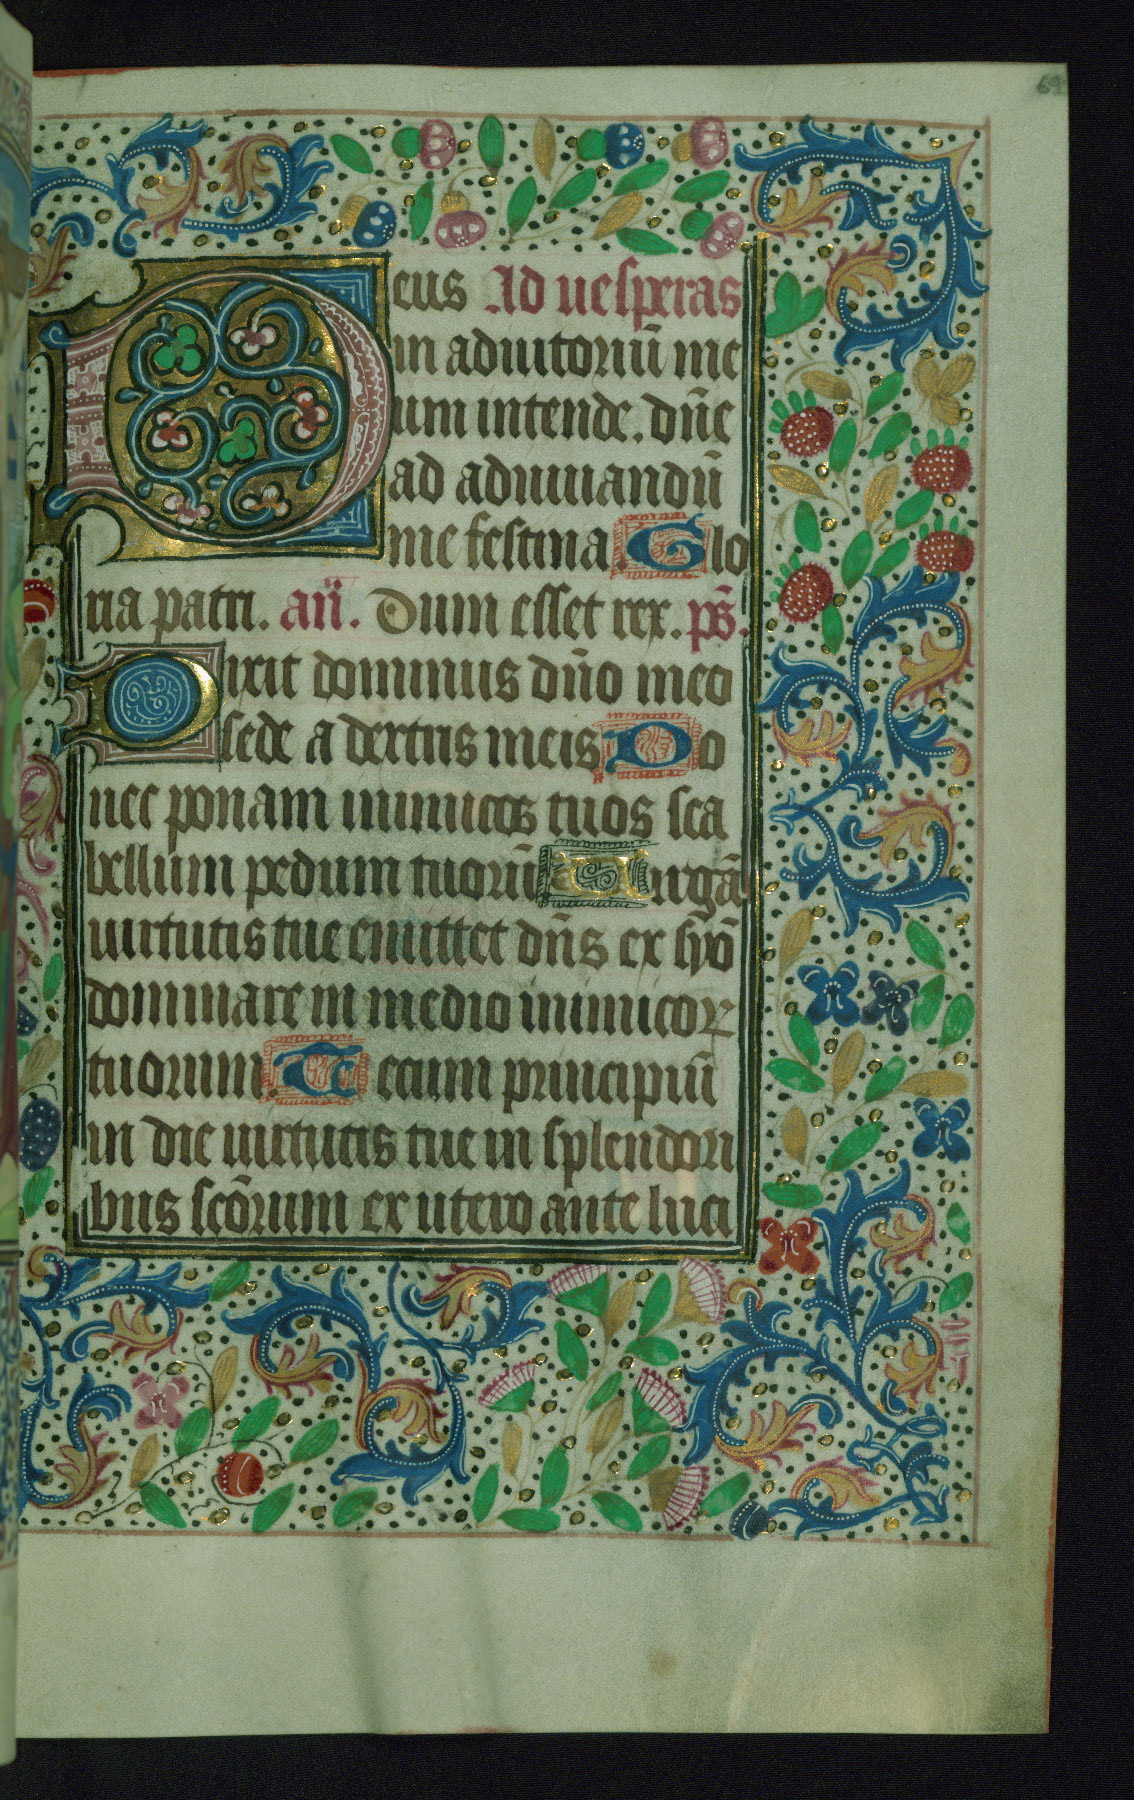 69
Deus Ad uesperas
in adiutoriū me
um intende. dn̄e
ad adiuuandū
me festina. Glo
ria patri. an̄. Dum esset rex. ps̄.
Dixit dominus dn̄o meo
sede a dextris meis Do
nec ponam inimicos tuos sca
bellum pedum tuorū Uirgā
uirtutis tue emittet dn̄s ex syō
dominare in medio inimicoꝝ
tuorum. Tecum principiū
in die uirtutis tue in splendori
bus scōrum ex utero ante luci